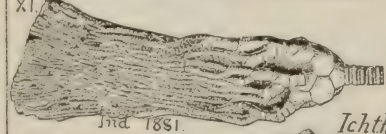 XI.
Ind 1881.
Ichth